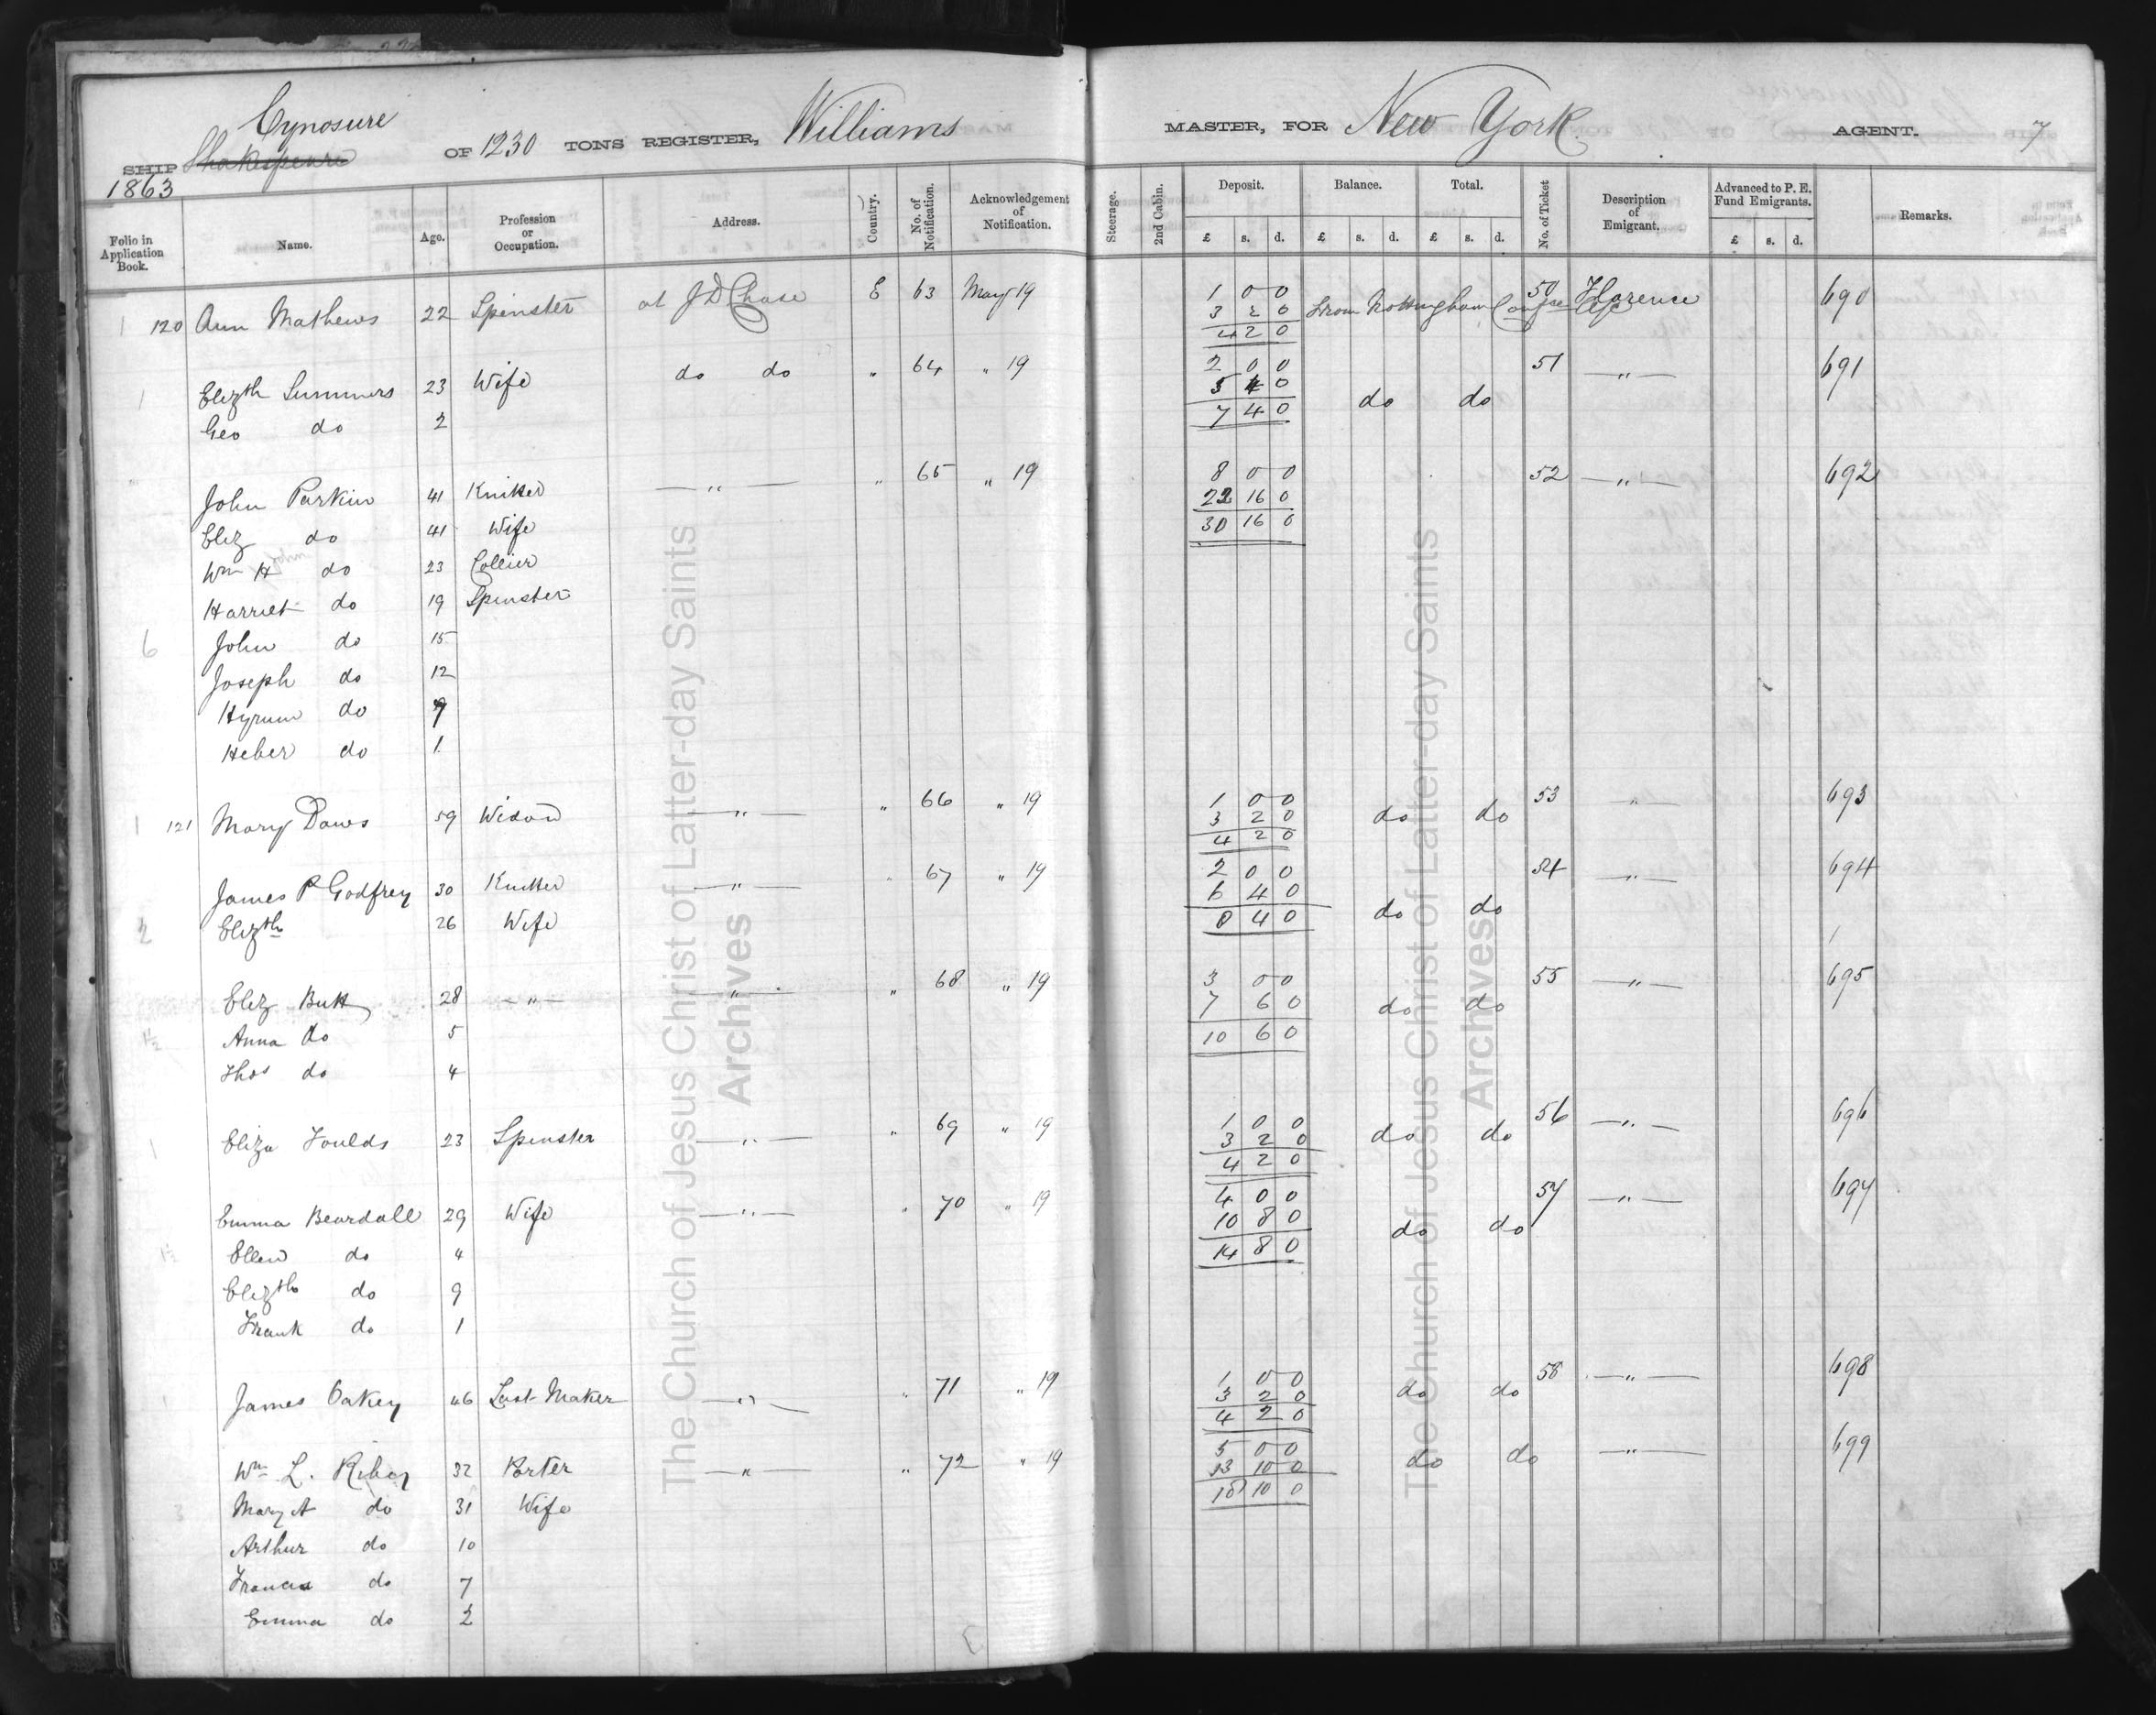 Cynosure
SHIP Shakespeare OF 1230 TONS REGISTER, Williams MASTER, FOR New York AGENT. 7
1863
Folio in Application Book. Name. Age. Profession or Occupation. Address. Country. No. of Notification. Acknowledgement of Notification. Steerage. 2nd Cabin. Deposit. Balance. Total. No. of Ticket Description of Emigrant. Advanced to P. E. Fund Emigrants. Remarks.
£ s. d. £ s. d. £ s. d. £ s. d.
1 120 Ann Mathews 22 Spinster at J D Chase E 63 May 19 1 0 0 50 Florence 690
3 2 0 From Nottingham
4 2 0
1 Elizth Summers 23 Wife do do " 64 " 19 2 0 0 51 " 691
Geo do 2 5 4 0 do do
7 4 0
John Parkin 41 Knitter " " 65 " 19 8 0 0 52 " 692
Eliz do 41 Wife 22 16 0
Wm H John do 23 Collier 30 16 0
Harriet do 19 Spinster
6 John do 15
Joseph do 12
Hyrum do 9
Heber do 1
1 121 Mary Daws 59 Widow " " 66 " 19 1 0 0 53 " 693
3 2 0 do do
4 2 0
James P Godfrey 30 Knitter " " 67 " 19 2 0 0 54 " 694
2 Elizth 26 Wife 6 4 0 do do
8 4 0
Eliz Butt 28 " " " 68 " 19 3 0 0 55 " 695
1½ Anna do 5 7 6 0 do do
Thos do 4 10 6 0
1 Eliza Foulds 23 Spinster " " 69 " 19 1 0 0 56 " 696
3 2 0 do do
4 2 0
Emma Beardall 29 Wife " " 70 " 19 4 0 0 57 " 697
1½ Ellen do 4 10 8 0 do do
Elizth do 9 14 8 0
Frank do 1
1 James Oakey 46 Last Maker " " 71 " 19 1 0 0 58 " 698
3 2 0 do do
4 2 0
Wm L. Riley 32 Porter " " 72 " 19 5 0 0 " 699
3 Mary A do 31 Wife 13 10 0 do do
Arthur do 10 18 10 0
Francis do 7
Emma do 2
The Church of Jesus Christ of Latter-day Saints
Archives
The Church of Jesus Christ of Latter-day Saints
Archives